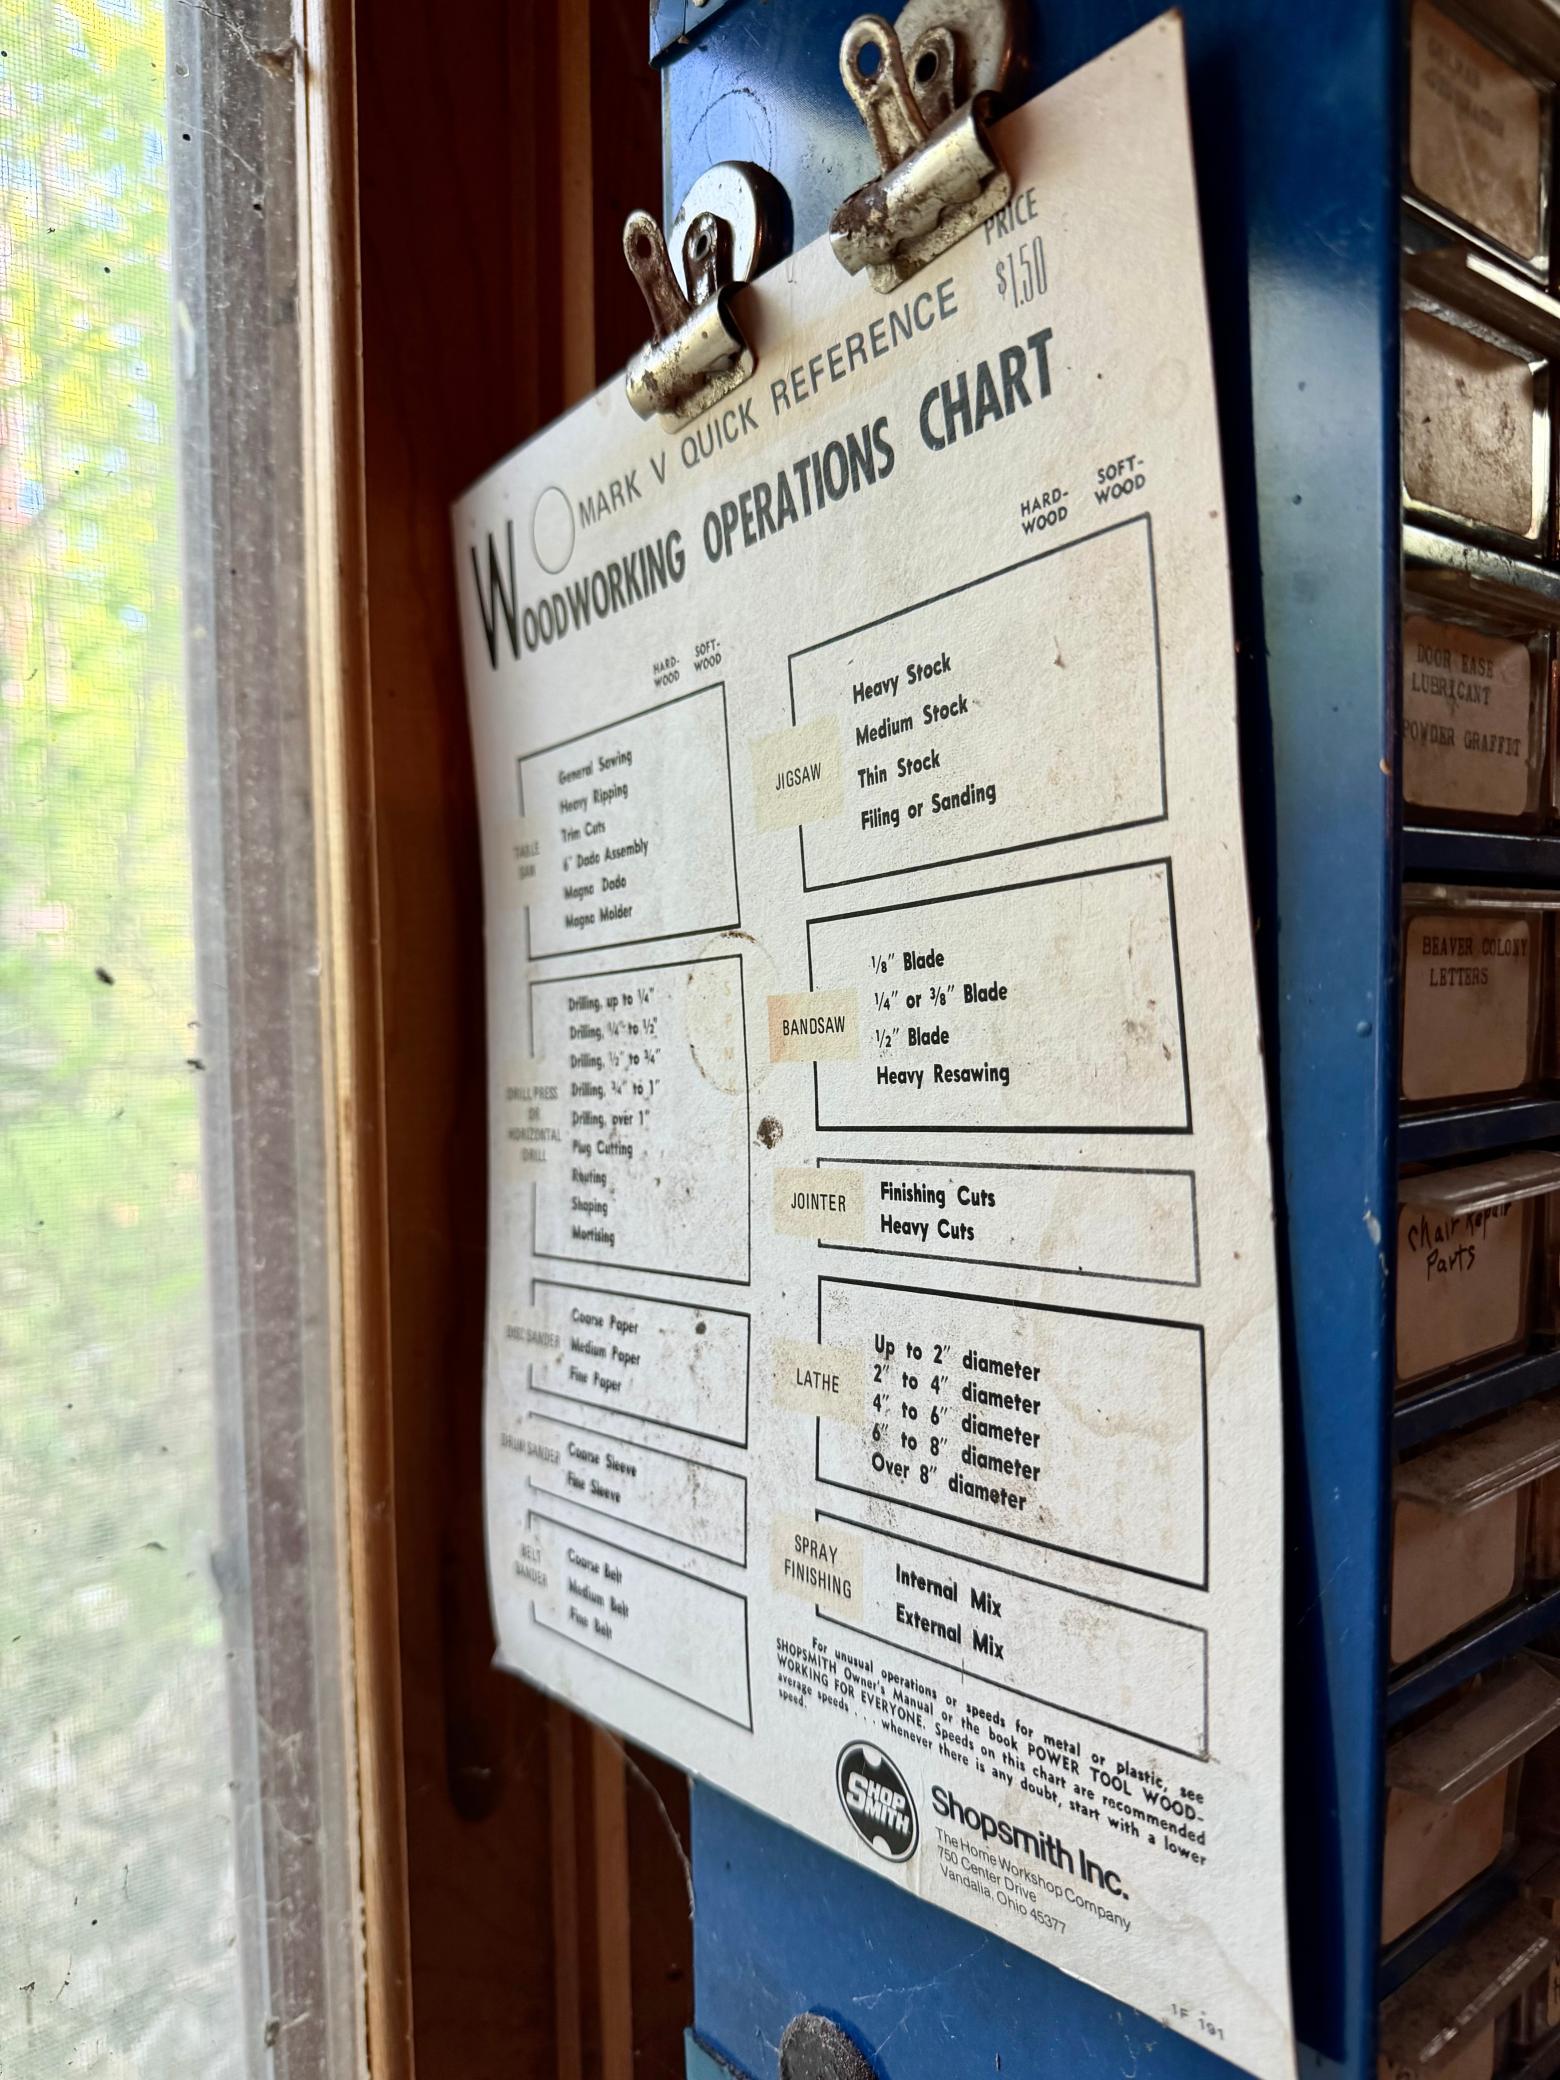 PRICE
$1.50
MARK V QUICK REFERENCE
WOODWORKING OPERATIONS CHART
HARD-
WOOD
SOFT-
WOOD
TABLE
SAW
General Sawing
Heavy Ripping
Trim Cuts
6" Dado Assembly
Magna Dado
Magna Molder
DRILL PRESS
OR
HORIZONTAL
DRILL
Drilling, up to 1/4"
Drilling, 1/4" to 1/2"
Drilling, 1/2" to 3/4"
Drilling, 3/4" to 1"
Drilling, over 1"
Plug Cutting
Routing
Shaping
Mortising
DISC SANDER
Coarse Paper
Medium Paper
Fine Paper
DRUM SANDER
Coarse Sleeve
Fine Sleeve
BELT
SANDER
Coarse Belt
Medium Belt
Fine Belt
HARD-
WOOD
SOFT-
WOOD
JIGSAW
Heavy Stock
Medium Stock
Thin Stock
Filing or Sanding
BANDSAW
1/8" Blade
1/4" or 3/8" Blade
1/2" Blade
Heavy Resawing
JOINTER
Finishing Cuts
Heavy Cuts
LATHE
Up to 2" diameter
2" to 4" diameter
4" to 6" diameter
6" to 8" diameter
Over 8" diameter
SPRAY
FINISHING
Internal Mix
External Mix
For unusual operations or speeds for metal or plastic, see
SHOPSMITH Owner's Manual or the book POWER TOOL WOOD-
WORKING FOR EVERYONE. Speeds on this chart are recommended
average speeds . . . whenever there is any doubt, start with a lower
speed.
SHOP
SMITH
Shopsmith Inc.
The Home Workshop Company
750 Center Drive
Vandalia, Ohio 45377
1F 191
DOOR EASE
LUBRICANT
POWDER GRAFFIT
BEAVER COLONY
LETTERS
Chair Repair
Parts